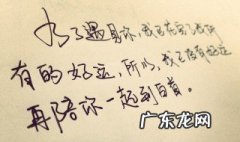 为了遇见你,我已花完了我所
有的好运,所以,我已没有好运
再陪你一起到白首。
广东龙网